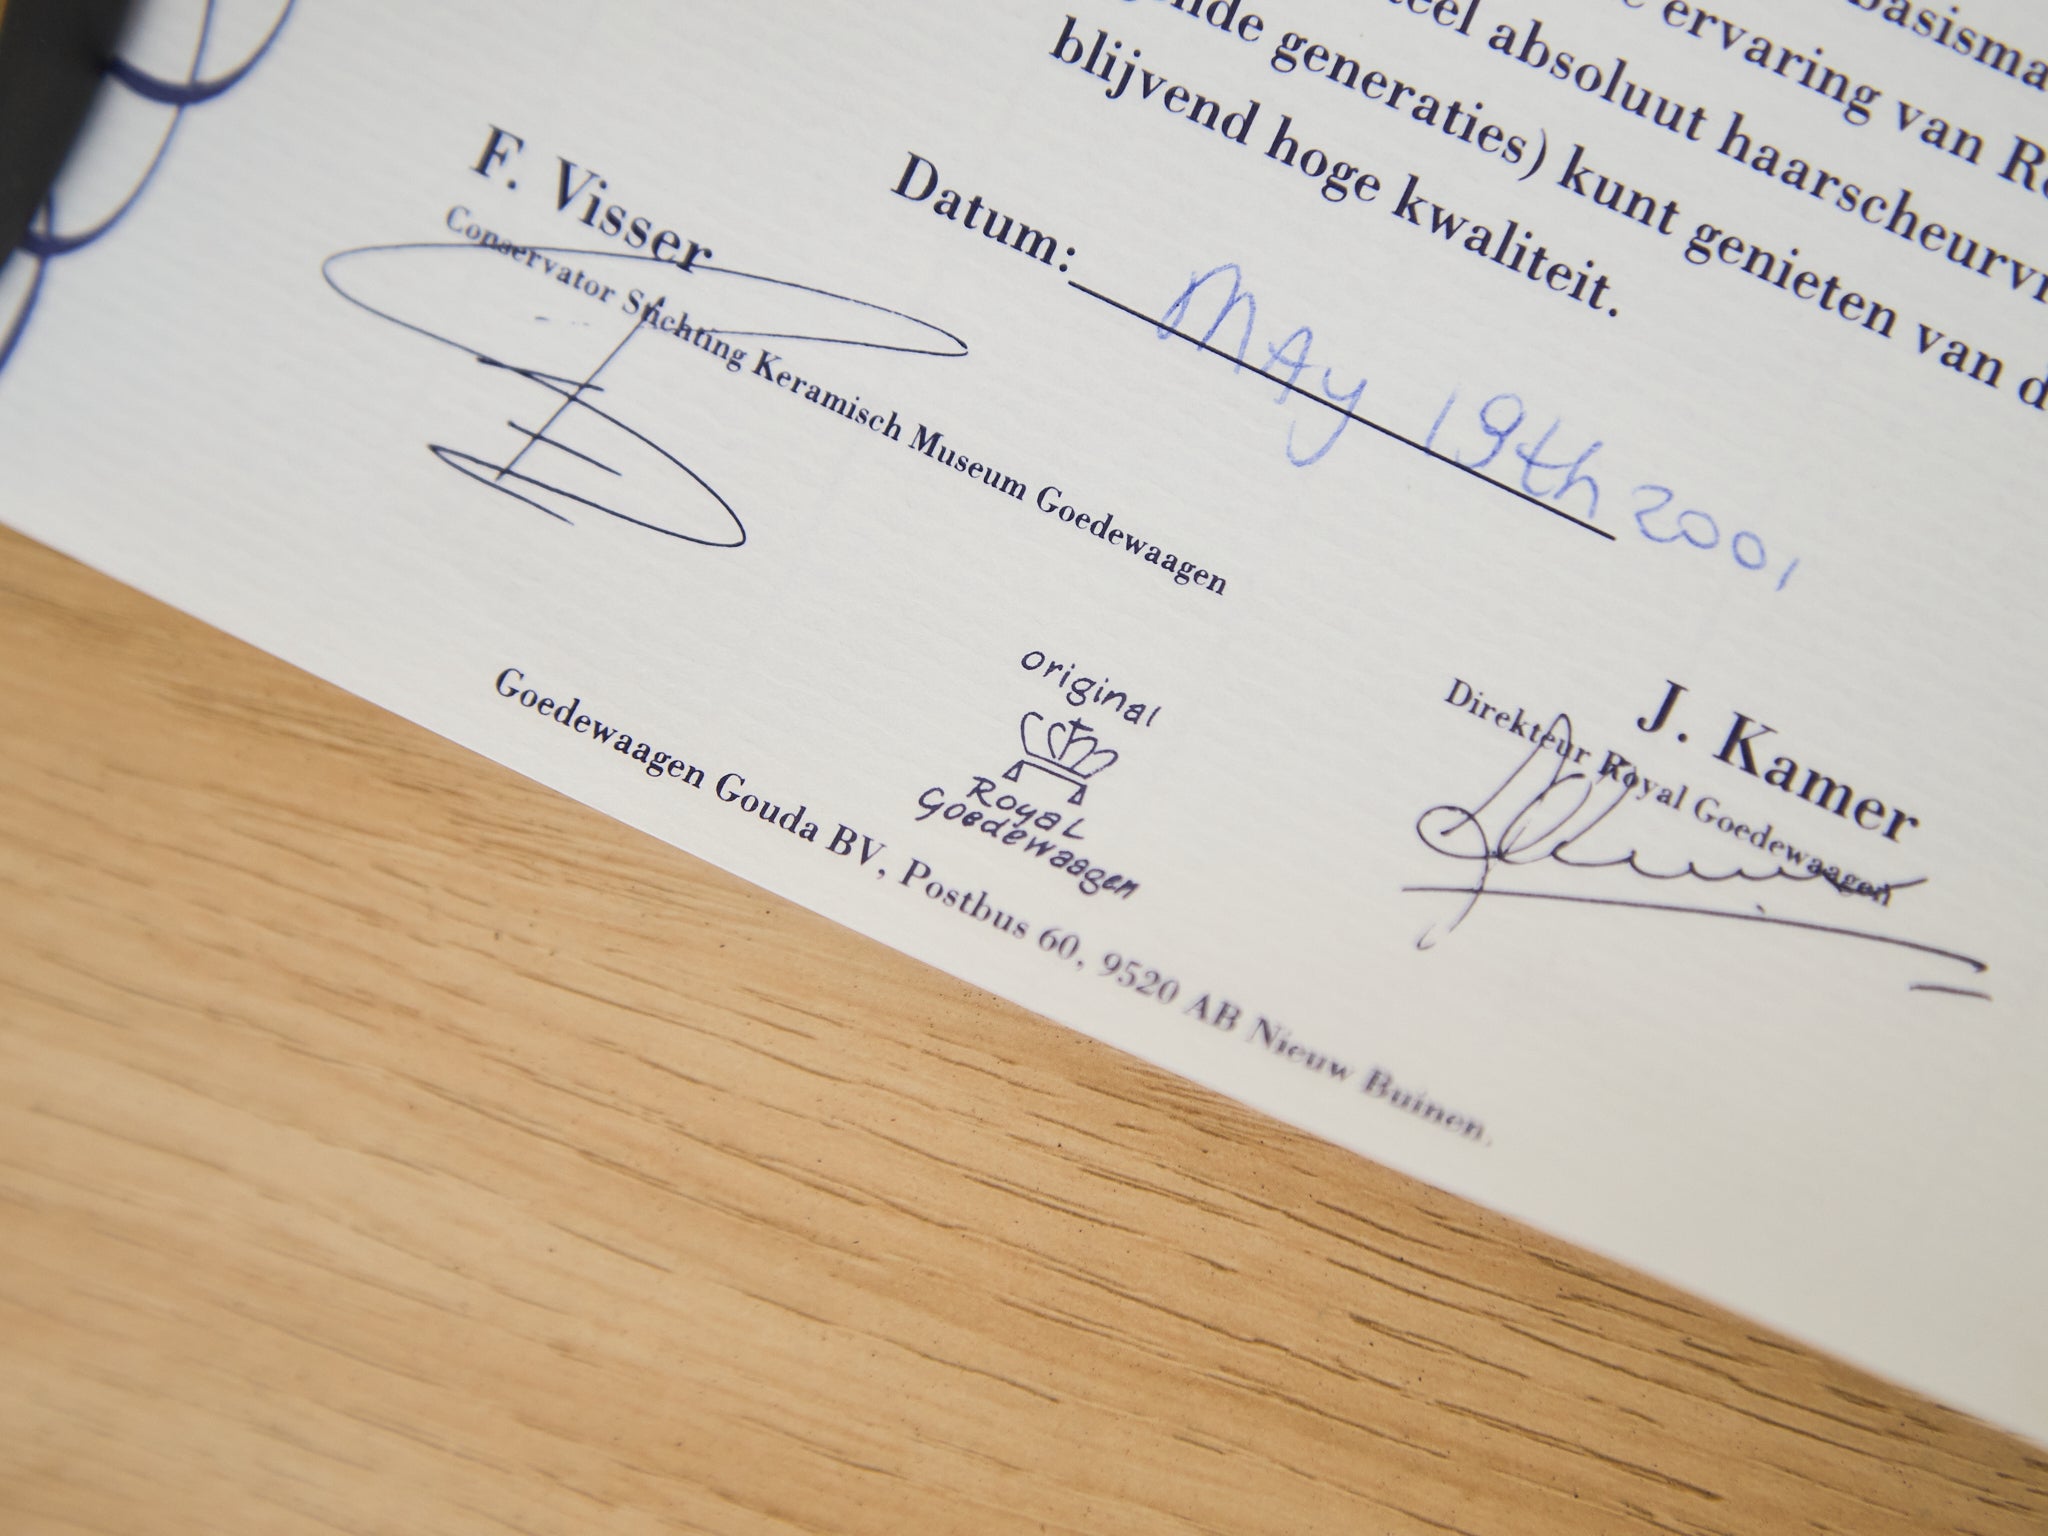 basisma
ervaring van R
eel absoluut haarscheurv
generaties) kunt genieten van d
blijvend hoge kwaliteit.
Datum: MAy 19th 2001
F. Visser
Conservator Stichting Keramisch Museum Goedewaagen
J. Kamer
Direkteur Royal Goedewaagen
original
Royal
Goedewaagen
Goedewaagen Gouda BV, Postbus 60, 9520 AB Nieuw Buinen.